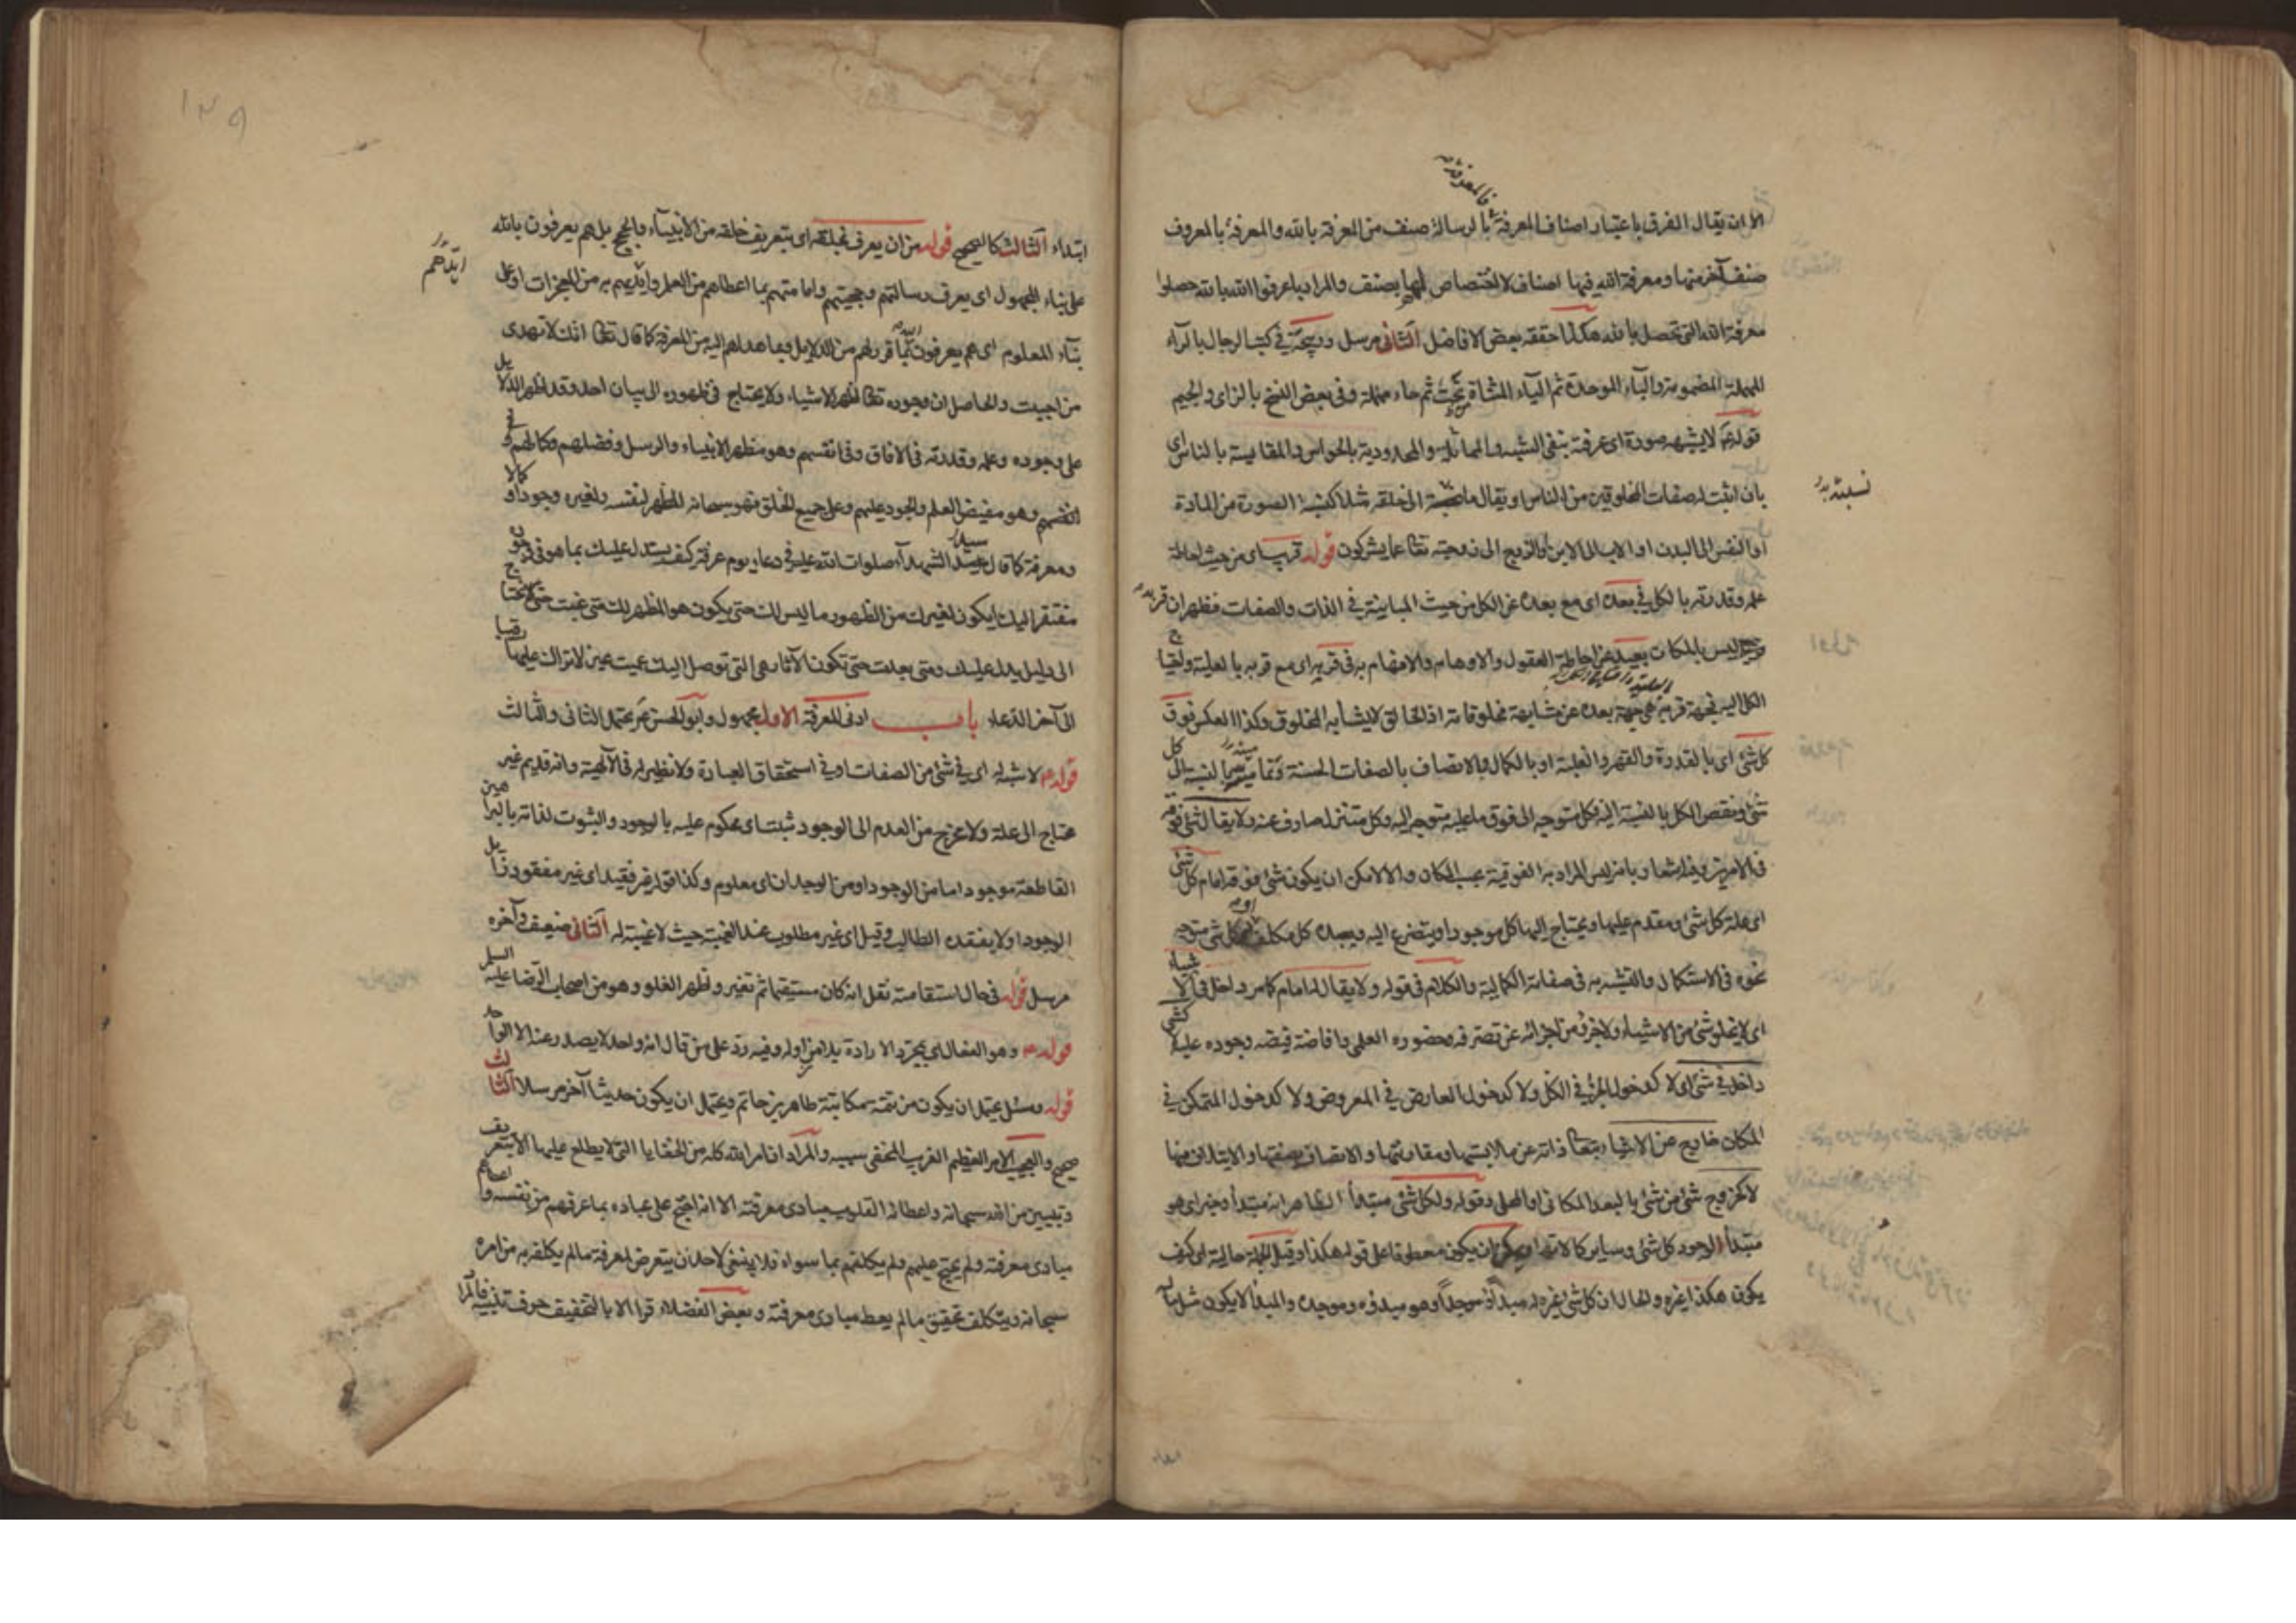 فالمعرفة
الا ان يقال الفرق باعتبار اصناف المعرفة بالرسالة صنف من المعرفة بالله والمعرفة بالمعروف
صنف آخر منها ومعرفة الله فيها اصناف لا اختصاص لها بصنف والمراد باعرفوا الله بالله حصلوا
معرفة الله التى تحصل بالله هكذا حققه بعض الافاضل الثانى مرسل وربيحة فى كتب الرجال بالراء
المهملة المضمومة والباء الموحدة ثم الياء المثناة تحت ثم حاء مهملة وفى بعض النسخ بالزاى والجيم
قوله لا يشبهه صورة اى عرفة بنفى الشبه والمماثلة والمحدودية بالحواس والمقايسة بالناس اى
بان اثبت له صفات المخلوقين من الناس او يقال ما نسبة الى خلقه مثلا كنسبة الصورة من المادة
نسبته
او النفس الى البدن او الاب الى الابن او الزوج الى زوجته تعالى عما يشركون قوله قريب اى من حيث احاطة
علمه وقدرته بالكل فى بعده اى مع بعده عن الكل من حيث المباينة فى الذات والصفات فظهر ان قربه
ليس بالمكان بعيد عن احاطة العقول والاوهام والافهام به فى قربه اى مع قربه بالعلية واحتياج
الكل اليه فجهة قربه هى جهة بعده عن مشابهة مخلوقاته اذ الخالق لا يشابه المخلوق وكذا العكس فوق
كل شئ اى بالقدرة والقهر والغلبة او بالكمال والاتصاف بالصفات الحسنة بالنسبة الى كل
شئ ونقص الكل بالنسبة اليه فكل متوجه الى فوق ما عليه متوجه اليه وكل متنزل صارف عنه ولا يقال شئ فوقه
فى الامرين وفيه اشعار بانه ليس المراد به الفوقية بحسب المكان والا لامكن ان يكون شئ فوقه امام كل شئ
اى علة كل شئ ومقدم عليها ويحتاج اليها كل موجود او يتضرع اليه ويعبده كل مكلف او كل شئ متوجه
نحوه فى الاستكمال والتشبه به فى صفاته الكمالية والكلام فى قوله ولا يقال له امام كما مر داخل فى الاشياء
اى لا يخلو شئ من الاشياء ولا جزء من اجزائه عن تصرفه وحضوره العلمى وافاضة فيضه وجوده عليه
داخل فى شئ اى لا كدخول الجزء فى الكل ولا كدخول العارض فى المعروض ولا كدخول المتمكن فى
المكان خارج عن الاشياء بتعالى ذاته عن ملابستها ومقارنتها والاتصاف بصفتها والايتلاف منها
لا كخروج شئ من شئ بالبعد المكانى او المحلى وقوله ولكل شئ مبتدأ الظاهر انه مبتدأ وخبر اى هو
مبتدأ لوجود كل شئ وساير كمالاته ويمكن ان يكون معطوفا على قوله هكذا وقيل الجملة حالية اى كيف
يكون هكذا غيره والحال ان كل شئ غيره له مبدأ وموجد وهو مبدئه وموجده والمبدأ لا يكون مثل ماله
١٢٩
ابتداء الثالث كالصحيح قوله من ان يعرف بخلقه اى بتعريف خلقه من الانبياء والحجج بل هم يعرفون بالله
على بناء المجهول اى يعرف رسالتهم وحجيتهم وامامتهم بما اعطاهم من العلم وايديهم به من المعجزات او على
ايدهم
بناء المعلوم اى هم يعرفون الله بما قرر لهم من الدلايل وبما هداهم اليه من المعرفة كما قال تعالى انك لا تهدى
من احببت والحاصل ان وجوده تعالى اظهر الاشياء ولا يحتاج فى ظهوره الى بيان احد وقد اظهر الدلايل
على وجوده وعلمه وقدرته فى الافاق وفى انفسهم وهو مظهر الانبياء والرسل وفضلهم وكمالهم فى
انفسهم وهو مفيض العلم والجود عليهم وعلى جميع الخلق فهو سبحانه المظهر لنفسه ولغيره وجودا وكمالا
ومعرفة كما قال سيد الشهداء صلوات الله عليه فى دعاء يوم عرفة كيف يستدل عليك بما هو فى وجوده
مفتقر اليك ايكون لغيرك من الظهور ما ليس لك حتى يكون هو المظهر لك متى غبت حتى تحتاج
الى دليل يدل عليك ومتى بعدت حتى تكون الآثار هى التى توصل اليك عميت عين لا تراك عليها رقيبا
الى آخر الدعاء باب ادنى المعرفة الاول مجهول وابو الحسن يحتمل الثانى والثالث
قوله لا شبه له اى فى شئ من الصفات او فى استحقاق العبادة ولا نظير له فى الالهية وانه قديم غير
محتاج الى علة ولا مخرج من العدم الى الوجود مثبت اى محكوم عليه بالوجود والثبوت لذاته بالبراهين
القاطعة موجود اما من الوجود او من الوجدان اى معلوم وكذا قوله غير فقيد اى غير مفقود زايل
الوجود او لا يفقده الطالب وقيل اى غير مطلوب عند الغيبة حيث لا غيبة له الثانى ضعيف وآخره
مرسل قوله فى حال استقامته نقل انه كان مستقيما ثم تغير واظهر الغلو وهو من اصحاب الرضا عليه السلم
قوله وهو الفعال اى بمجرد الارادة بلا مزاوله وفيه رد على من قال انه واحد لا يصدر عنه الا الواحد
قوله وسئل يحتمل ان يكون من تتمة مكاتبة طاهر بن حاتم ويحتمل ان يكون حديثا آخر مرسلا الثالث
صحيح والعجيب الامر العظيم الغريب المخفى سببه والمراد ان امر الله كله من الخفايا التى لا يطلع عليها الا بتعريف
وتبيين من الله سبحانه واعطائه القلوب مبادى معرفته الا انه احتج على عباده بما عرفهم من نفسه واعطاهم
مبادى معرفته ولم يحتج عليهم ولم يكلفهم بما سواه فلا ينبغى لاحد ان يتعرض لمعرفة ما لم يكلف به من امره
سبحانه ويتكلف تحقيق ما لم يعط مبادى معرفته وبعض الفضلاء قرا الا بالتخفيف حرف تنبيه فالمراد